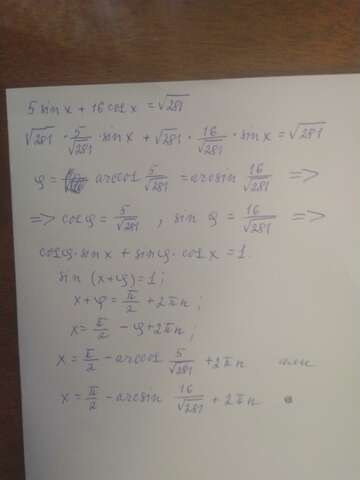 5 sin x + 16 cos x = √281
√281 · 5/√281 · sin x + √281 · 16/√281 · sin x = √281
φ = arccos 5/√281 = arcsin 16/√281 =>
=> cos φ = 5/√281 , sin φ = 16/√281 =>
cos φ · sin x + sin φ · cos x = 1.
sin (x+φ) = 1 ;
x+φ = π/2 + 2πn ;
x = π/2 - φ + 2πn ;
x = π/2 - arccos 5/√281 + 2πn или
x = π/2 - arcsin 16/√281 + 2πn